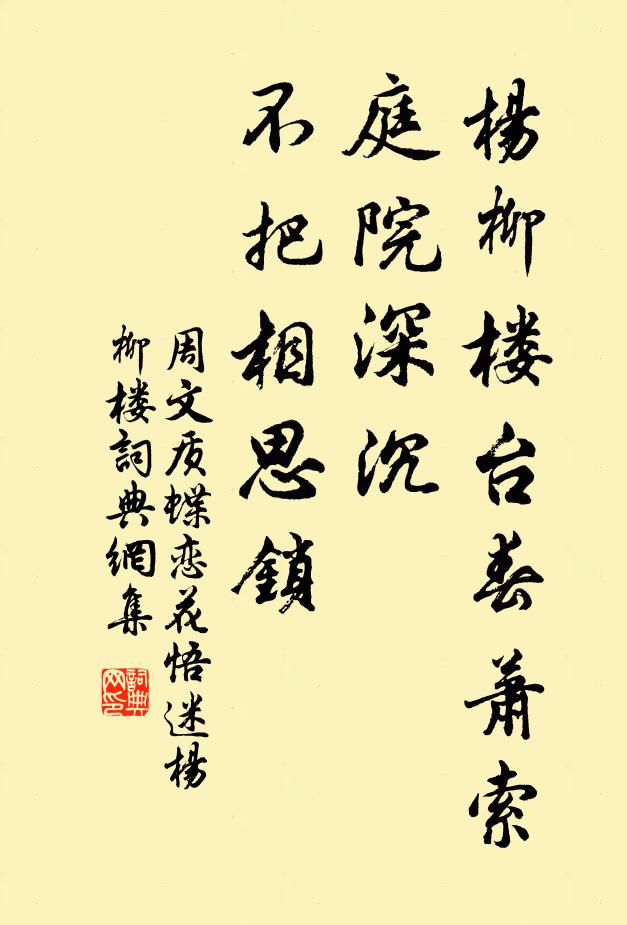 楊柳楼台春萧索
庭院深沉
不把相思鎖
周文质蝶恋花悟迷楊
柳楼詞典網集
詞典
网印